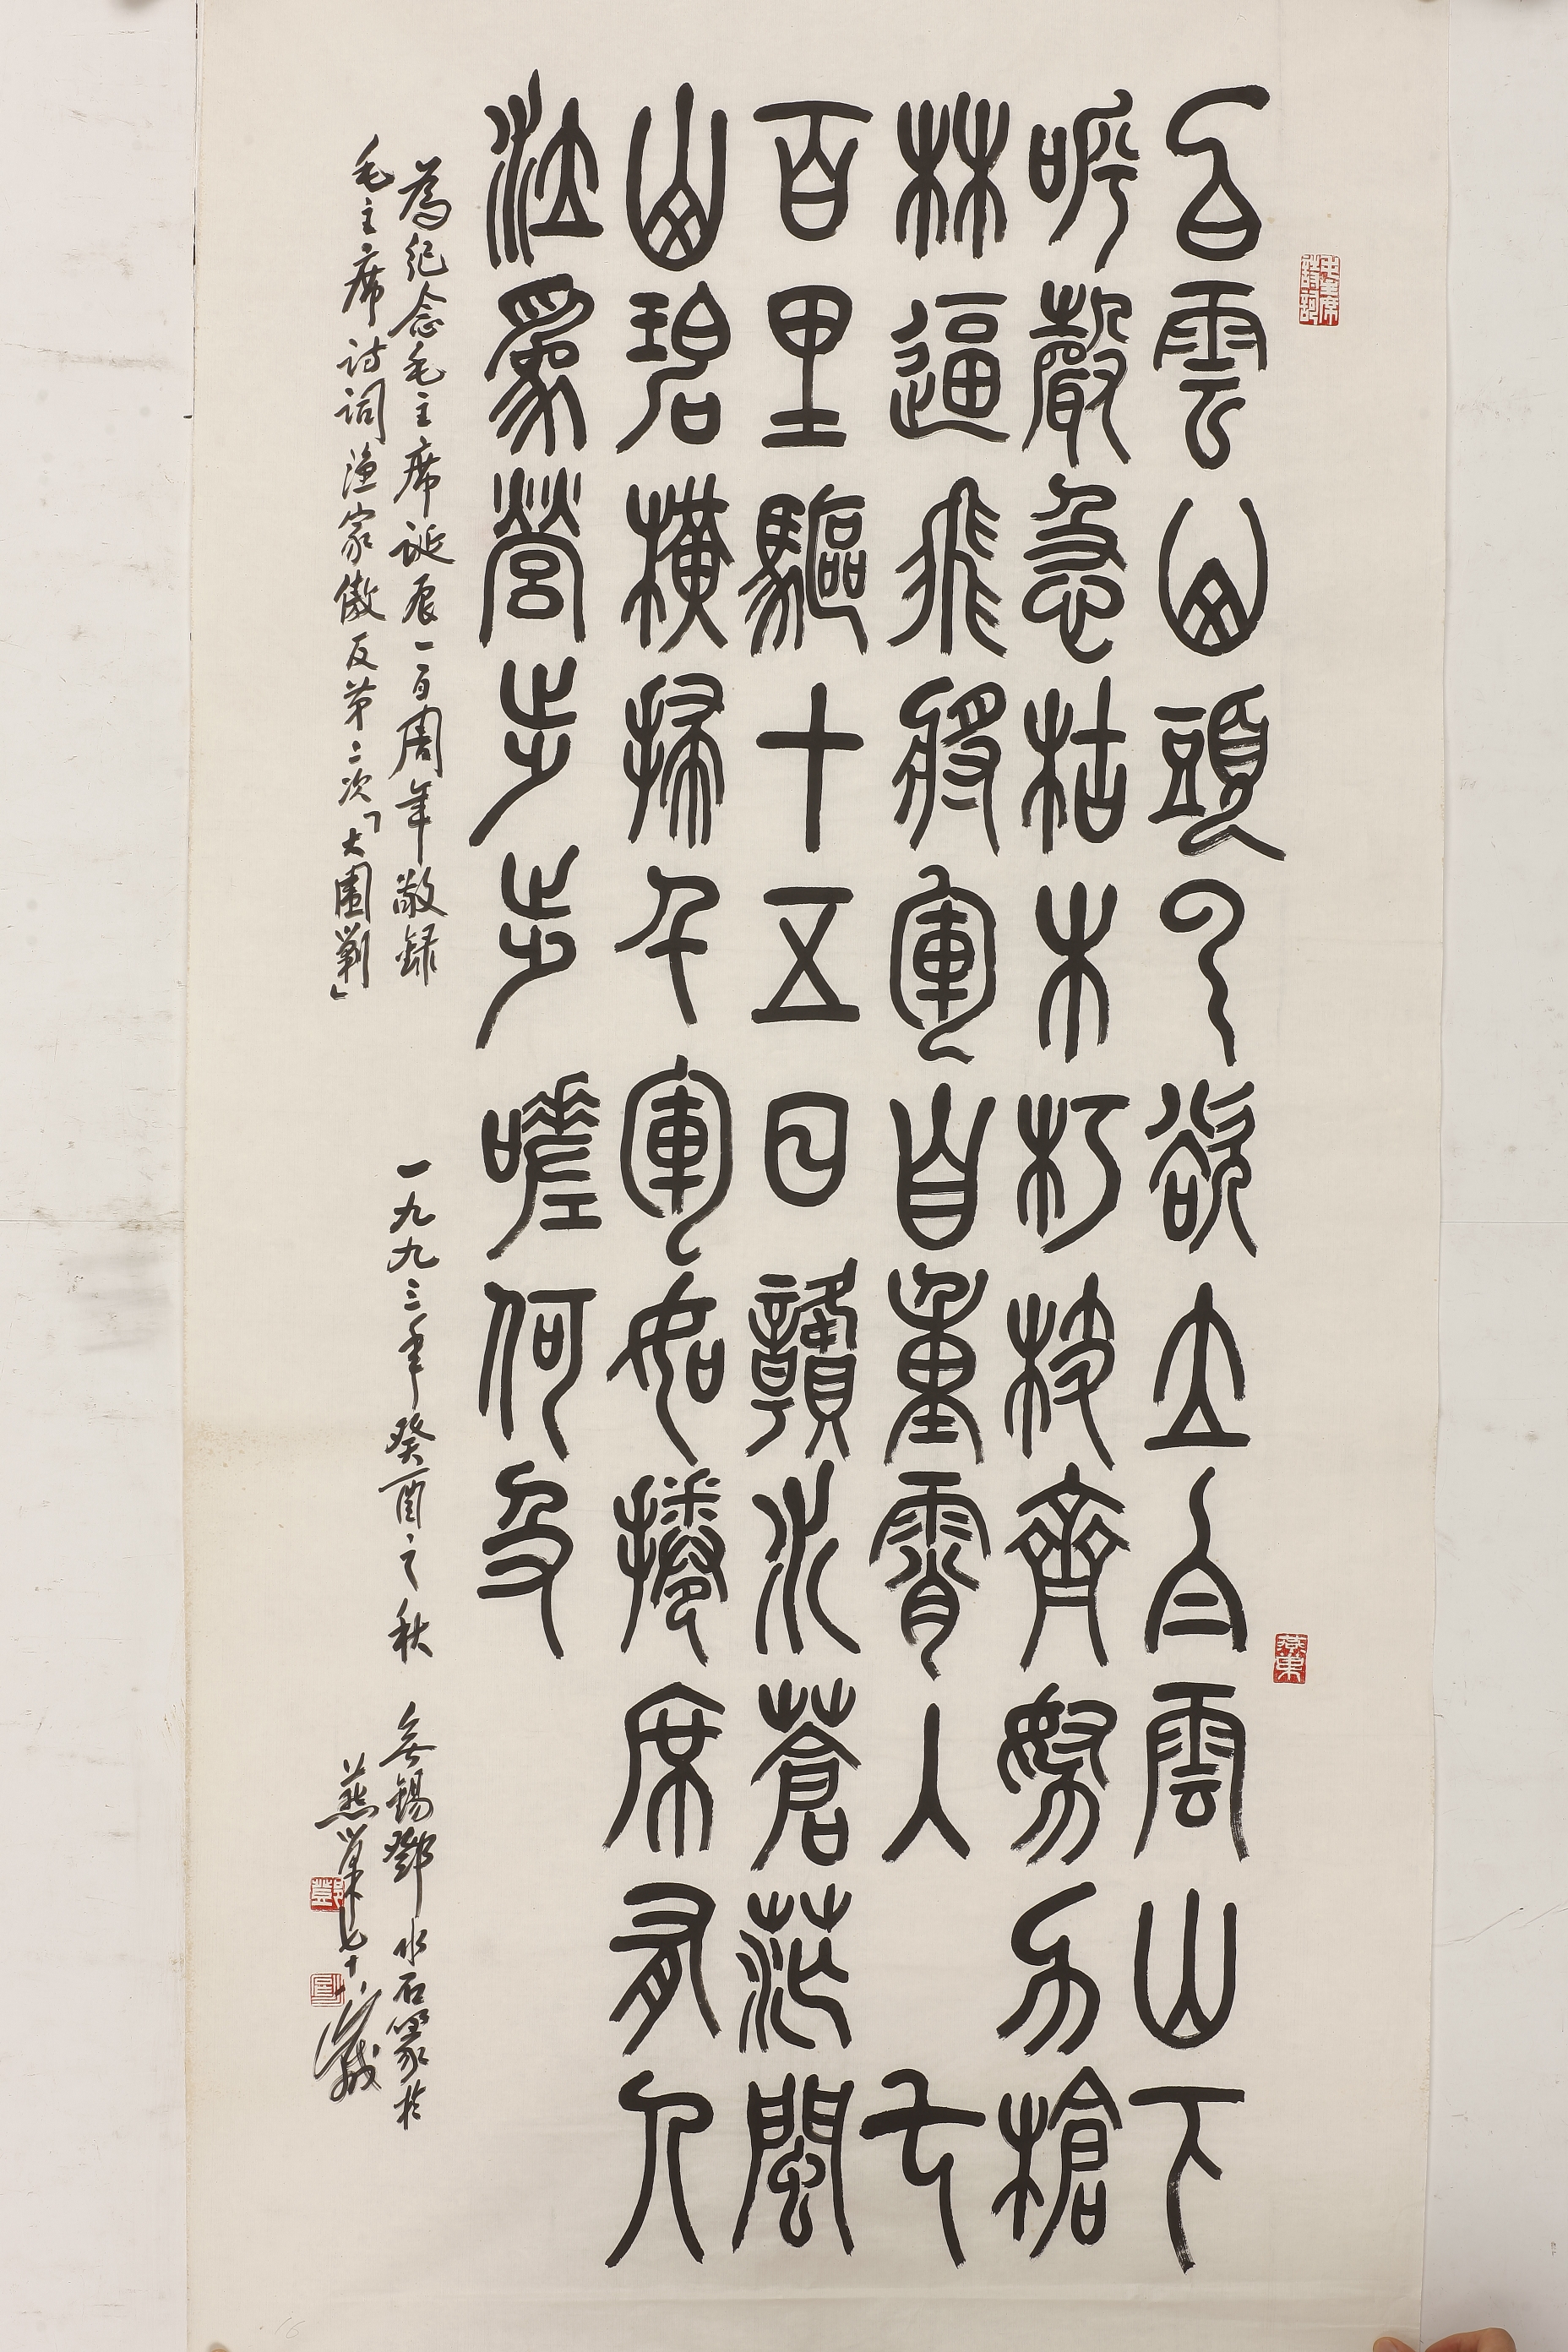 毛主席詩詞
白雲山頭云欲立白雲山下
燕巢
呼聲急枯木朽枝齊努力槍
林逼飛將軍自重霄入 七
百里驅十五日贛水蒼茫閩
山碧橫掃千軍如捲席有人
泣爲營步步 嗟何及
為紀念毛主席誕辰一百周年敬録 一九九三年癸酉之秋 無錫鄧水石篆於
毛主席诗詞漁家傲反第二次「大圍剿」 燕巢七十八歲
鄧